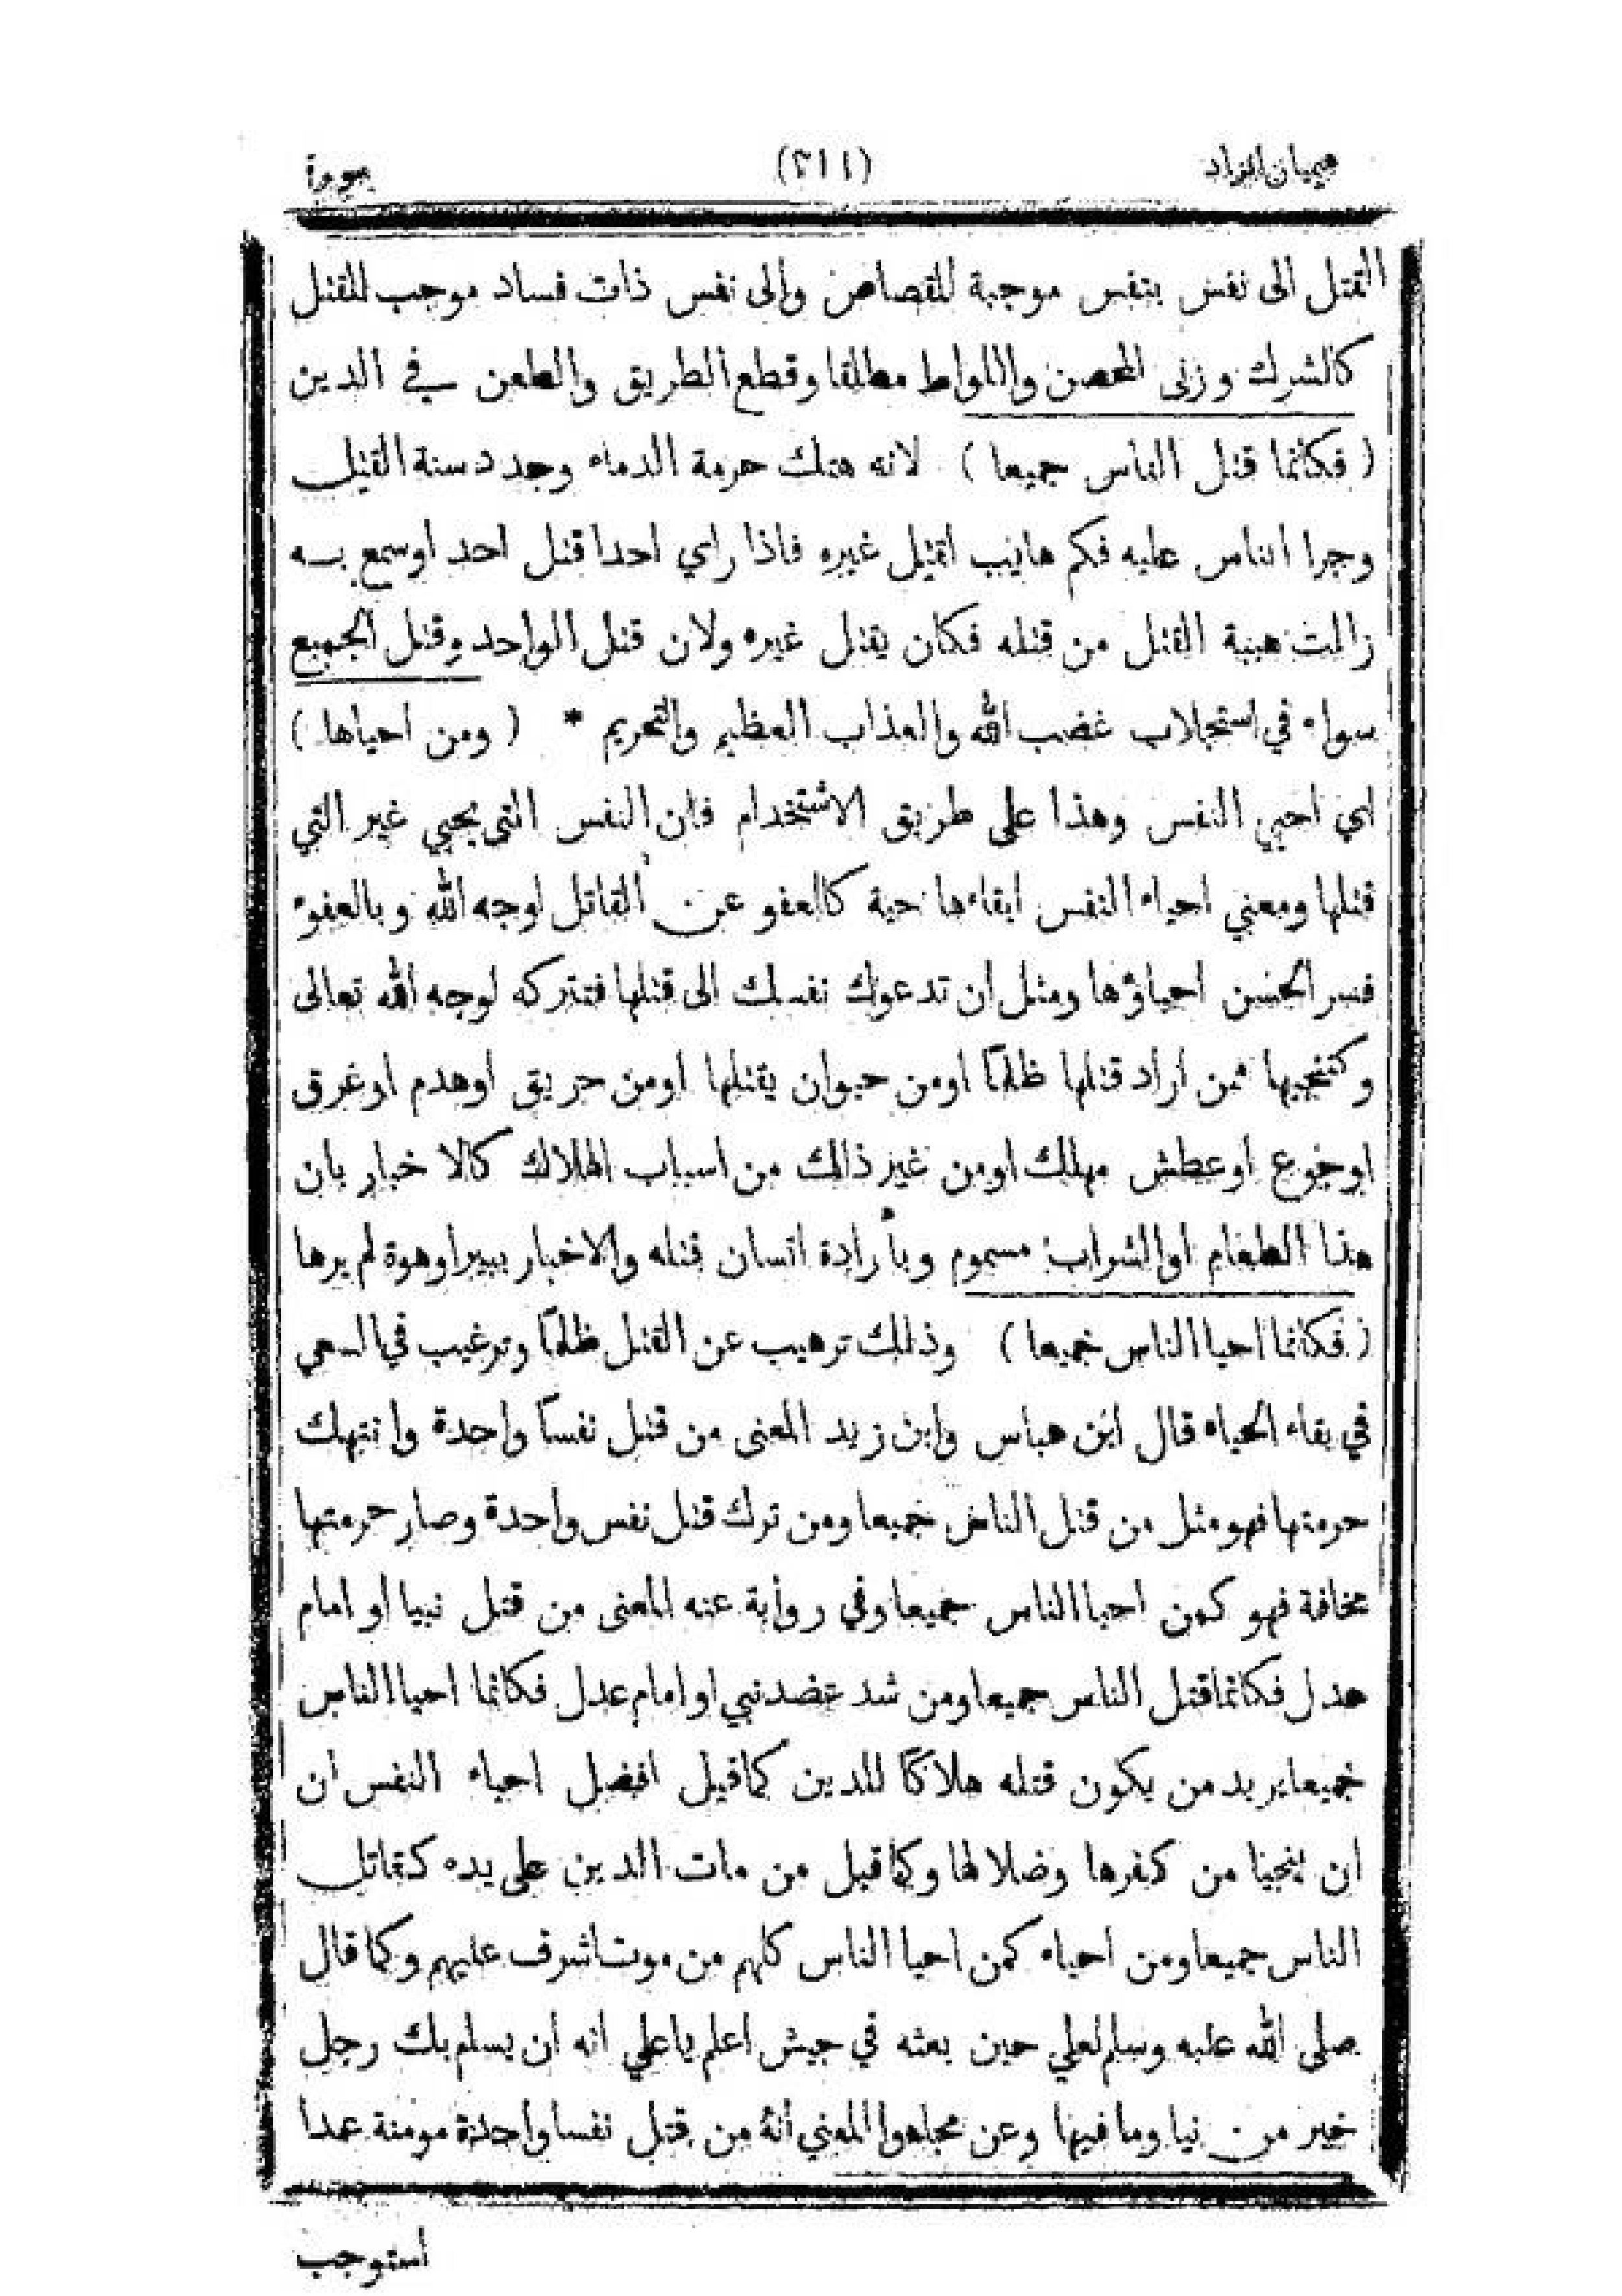 هيميان الزاد (٢١١) سورة
القتل الى نفس بنفس موجبة للقصاص والى نفس ذات فساد موجب للقتل
كالشرك وزنى المحصن واللواط مطلقا وقطع الطريق والطعن في الدين
( فكانما قتل الناس جميعا ) لانه هتك حرمة الدماء وجدد سنة القتل
وجرا الناس عليه فكم هايب لقتل غيره فاذا راي احدا قتل احد اوسمع به
زالت هيبة القتل من قتله فكان يقتل غيره ولان قتل الواحد وقتل الجميع
سواء في استجلاب غضب الله والعذاب العظيم والتحريم * ( ومن احياها )
اي احيي النفس وهذا على طريق الاستخدام فان النفس التى يحيي غير التي
قتلها ومعني احياء النفس ابقاءها حية كالعفو عن القاتل لوجه الله وبالعفو
فسر الحسن احياؤها ومثل ان تدعوك نفسك الى قتلها فتتركه لوجه الله تعالى
وكتنجيها ممن اراد قتلها ظلمًا اومن حيوان يقتلها اومن حريق اوهدم اوغرق
اوجوع اوعطش مهلك اومن غير ذالك من اسباب الهلاك كالا خبار بان
هذا الطعام اوالشراب مسموم وبأرادة انسان قتله والاخبار ببيراوهوة لم يرها
( فكانما احيا الناس جميعا ) وذلك ترهيب عن القتل ظلمًا وترغيب في السعي
في بقاء الحياه قال ابن عباس وابن زيد المعنى من قتل نفسًا واحدة وانتهك
حرمتها فهو مثل من قتل الناس جميعا ومن ترك قتل نفس واحدة وصار حرمتها
مخافة فهو كمن احيا الناس جميعا وفي رواية عنه المعنى من قتل نبيا او امام
عدل فكانما قتل الناس جميعا ومن شد عضد نبي او امام عدل فكانما احيا الناس
جميعا يريد من يكون قتله هلاكًا للدين كما قيل افضل احياء النفس ان
ان ينجيا من كفرها وضلالها وكما قيل من مات الدين على يده كقاتل
الناس جميعا ومن احياه كمن احيا الناس كلهم من موت اشرف عليهم وكما قال
صلى الله عليه وسلم لعلي حين بعثه في جيش اعلم ياعلي انه ان يسلم بك رجل
خير من نيا وما فيها وعن المعني أنه من قتل نفسا واحدة مومنة عمدا
استوجب